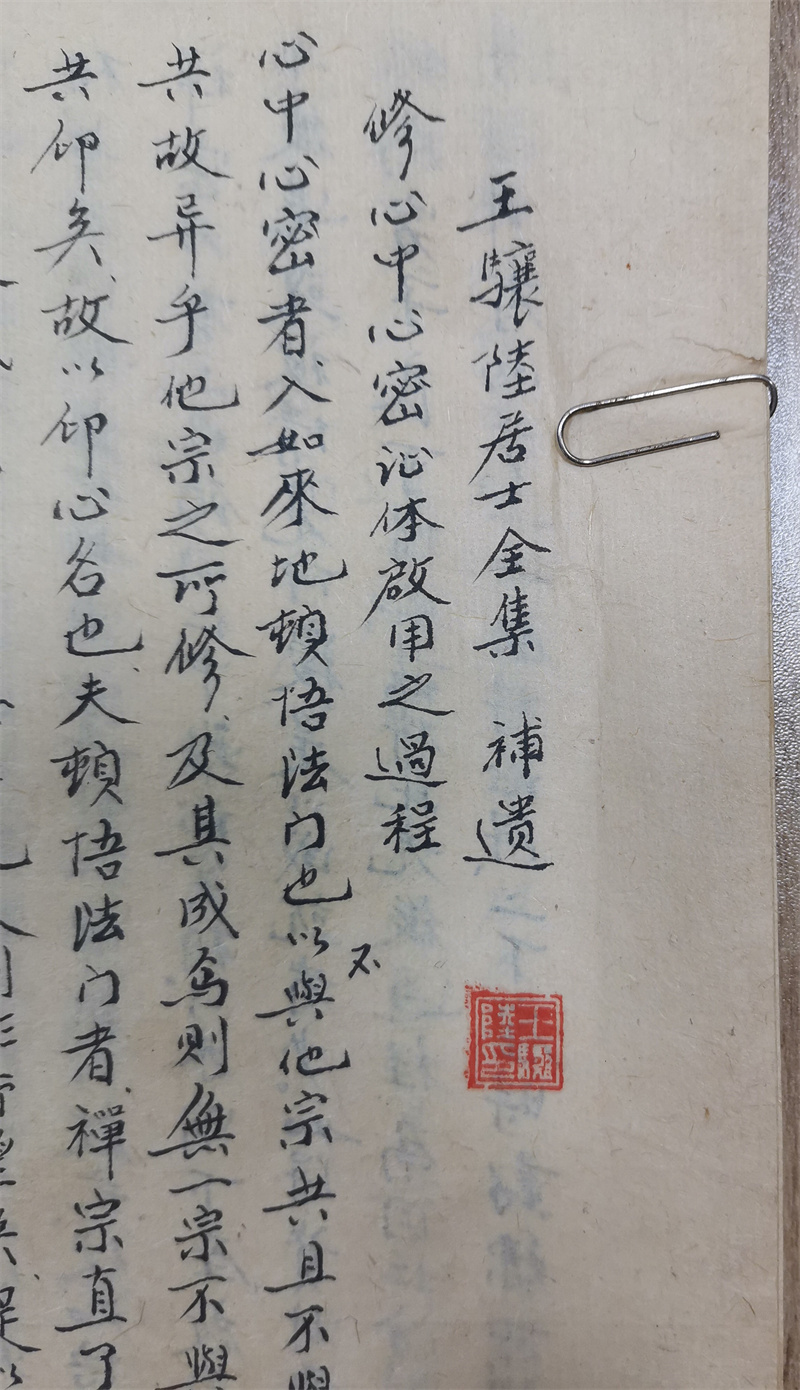 王驤陸居士全集 補遗
修心中心密证体啟用之過程
心中心密者入如來地頓悟法门也以不與他宗共且不與
共故异乎他宗之所修及其成焉则無一宗不與
共仰矣故以仰心名也夫頓悟法门者禪宗直了
王驤陸印